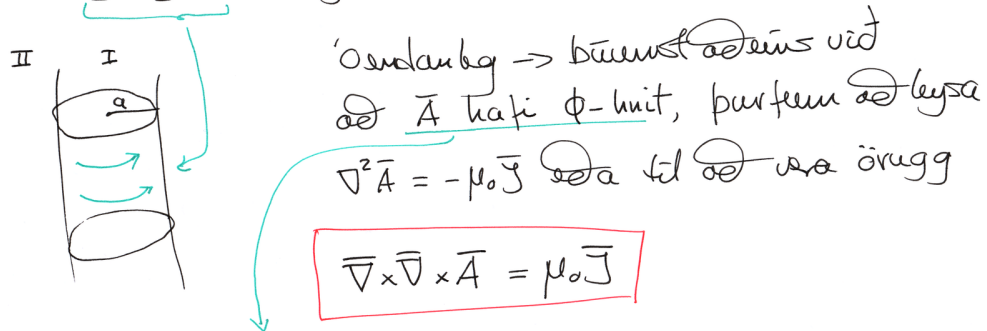 II I
a
Óendanleg → búumst aðeins við
að A̅ hafi ϕ-hnit, þurfum að leysa
∇²A̅ = -μ₀J̅ eða til að vera örugg
∇̅×∇̅×A̅ = μ₀J̅